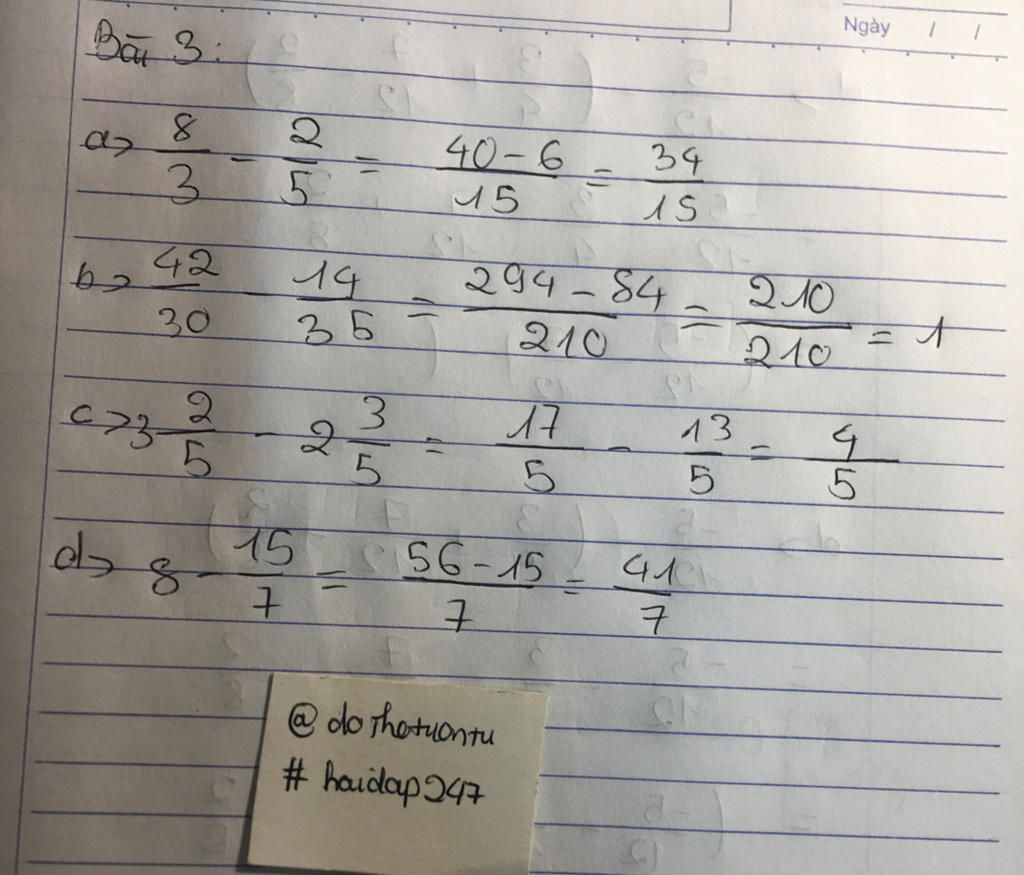 Ngày / /
Bài 3:
a> 8/3 - 2/5 = 40-6/15 = 34/15
b> 42/30 - 14/35 = 294-84/210 = 210/210 = 1
c> 3 2/5 - 2 3/5 = 17/5 - 13/5 = 4/5
d> 8 - 15/7 = 56-15/7 = 41/7
# hoidap247